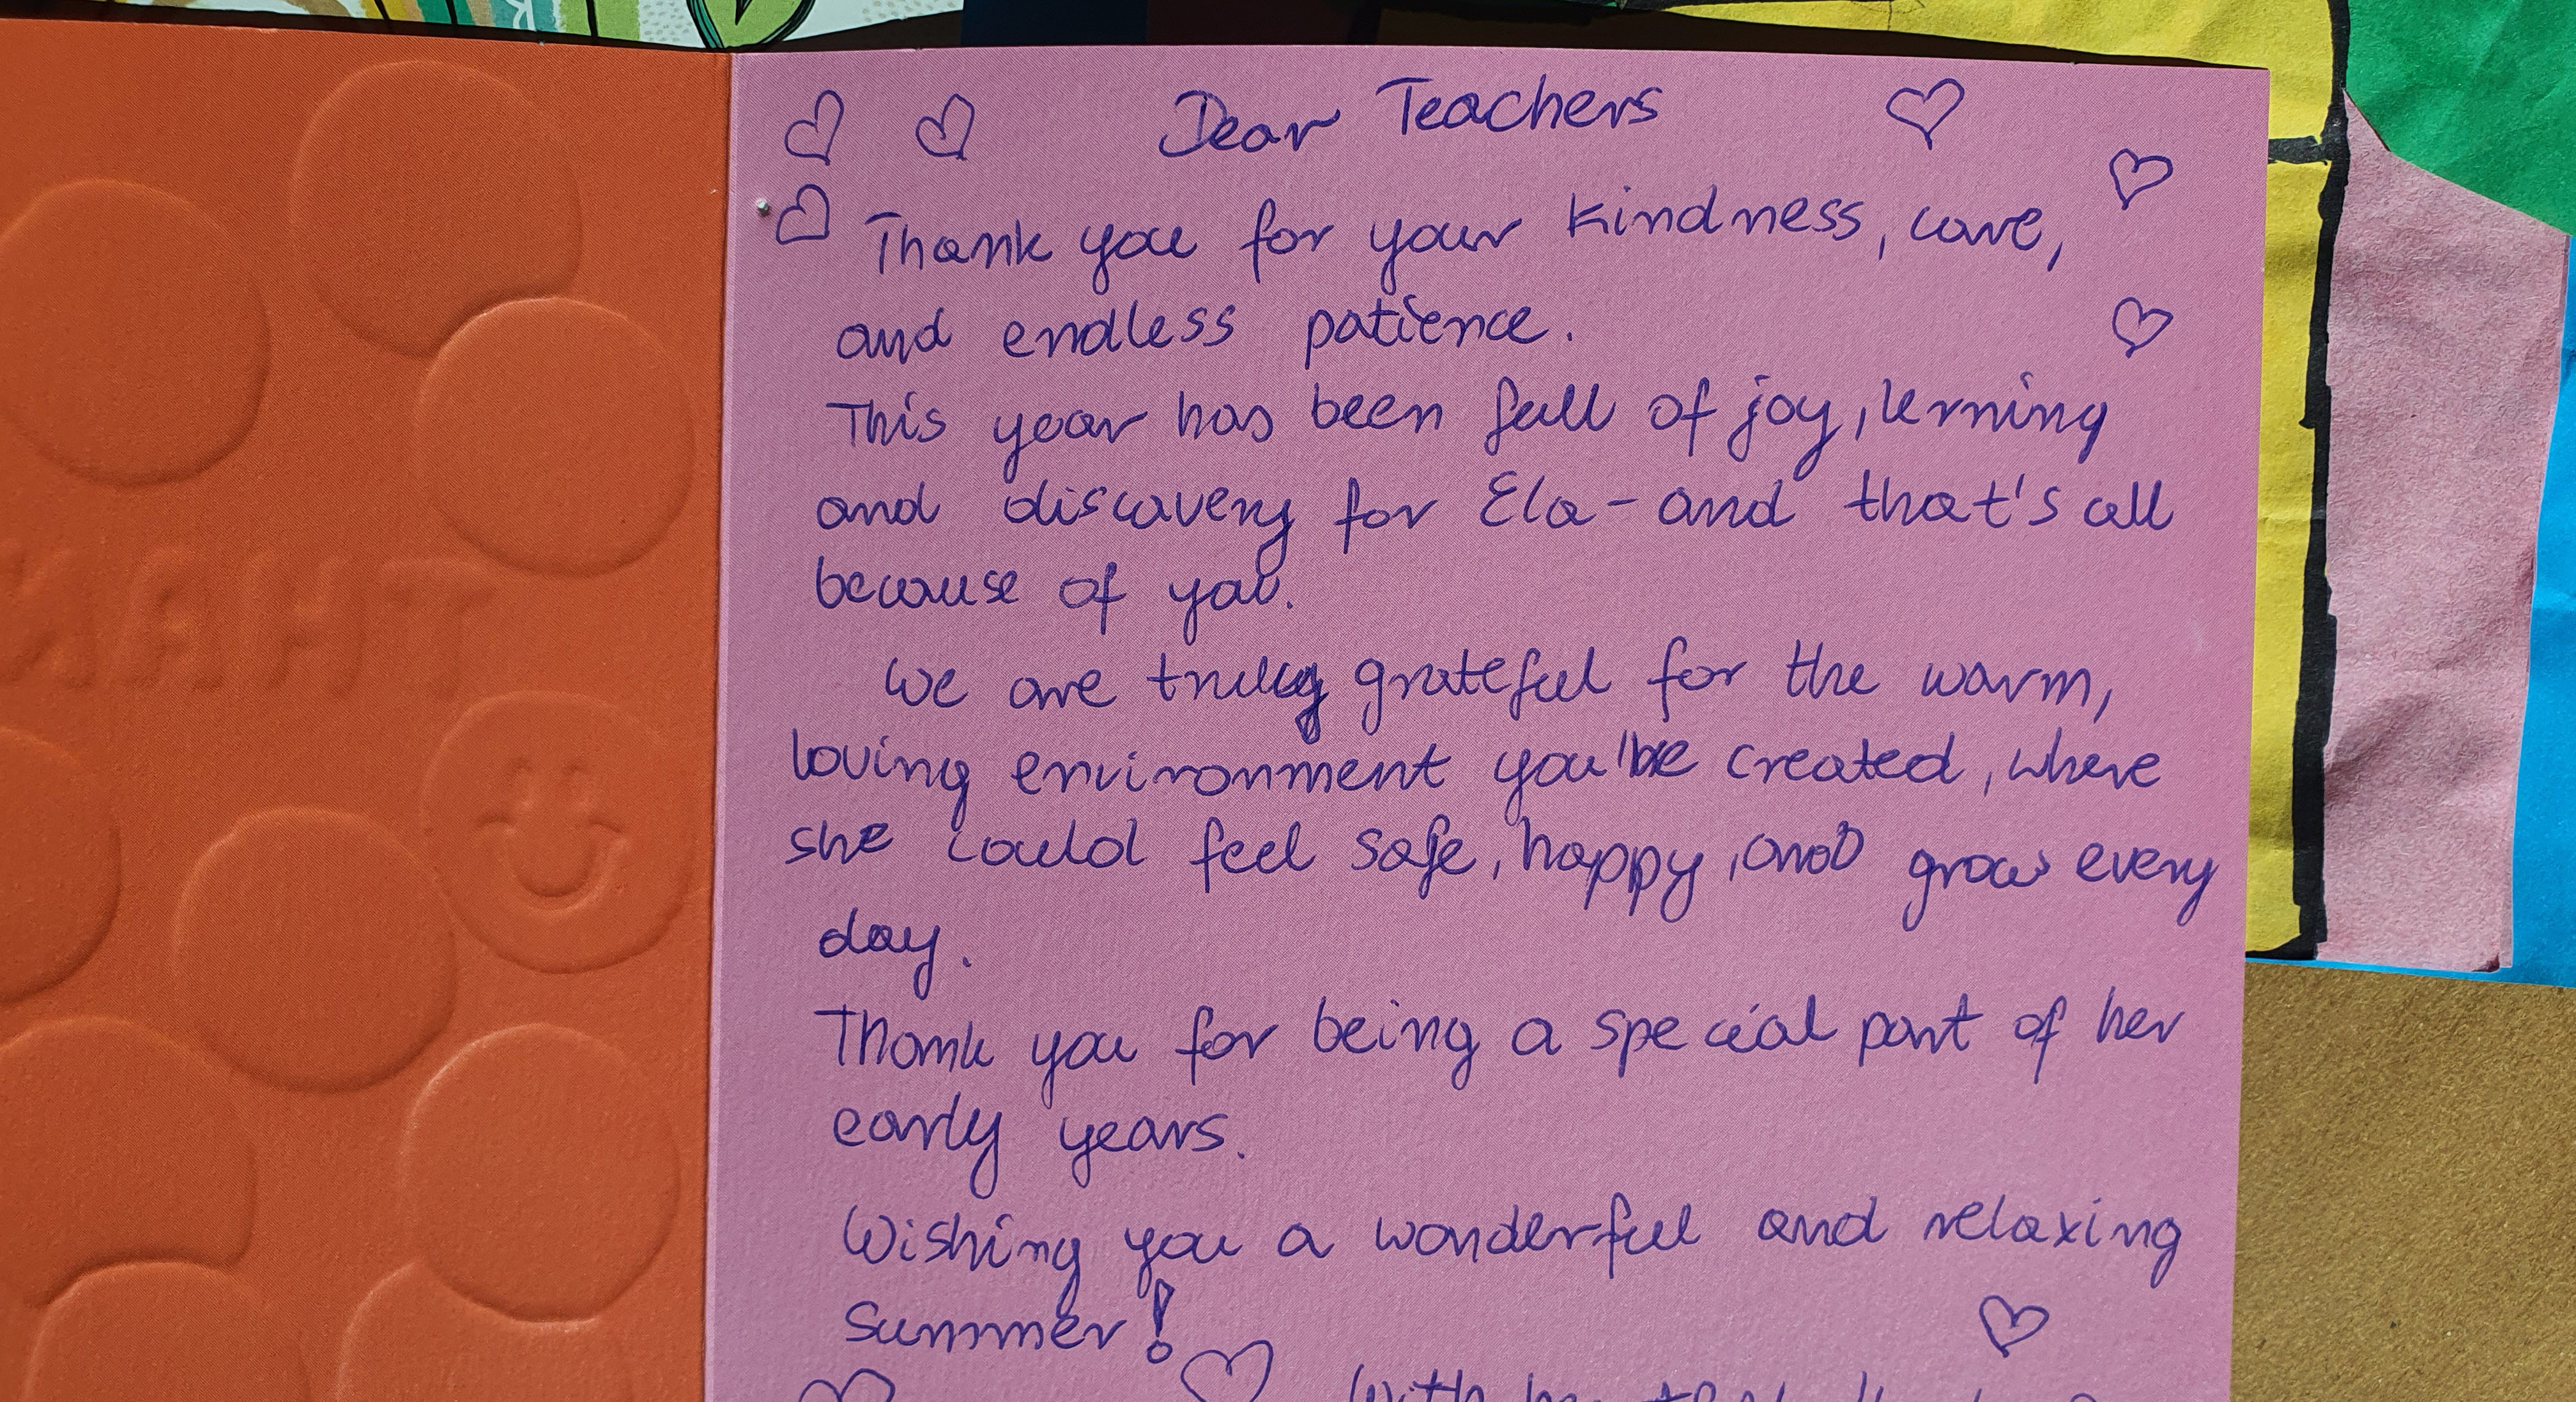 Dear Teachers
Thank you for your kindness, care,
and endless patience.
This year has been full of joy, lerning
and discovery for Ela - and that's all
because of you.
We are truly grateful for the warm,
loving environment you've created, where
she could feel safe, happy, and grow every
day.
Thank you for being a special part of her
early years.
Wishing you a wonderful and relaxing
Summer!
With